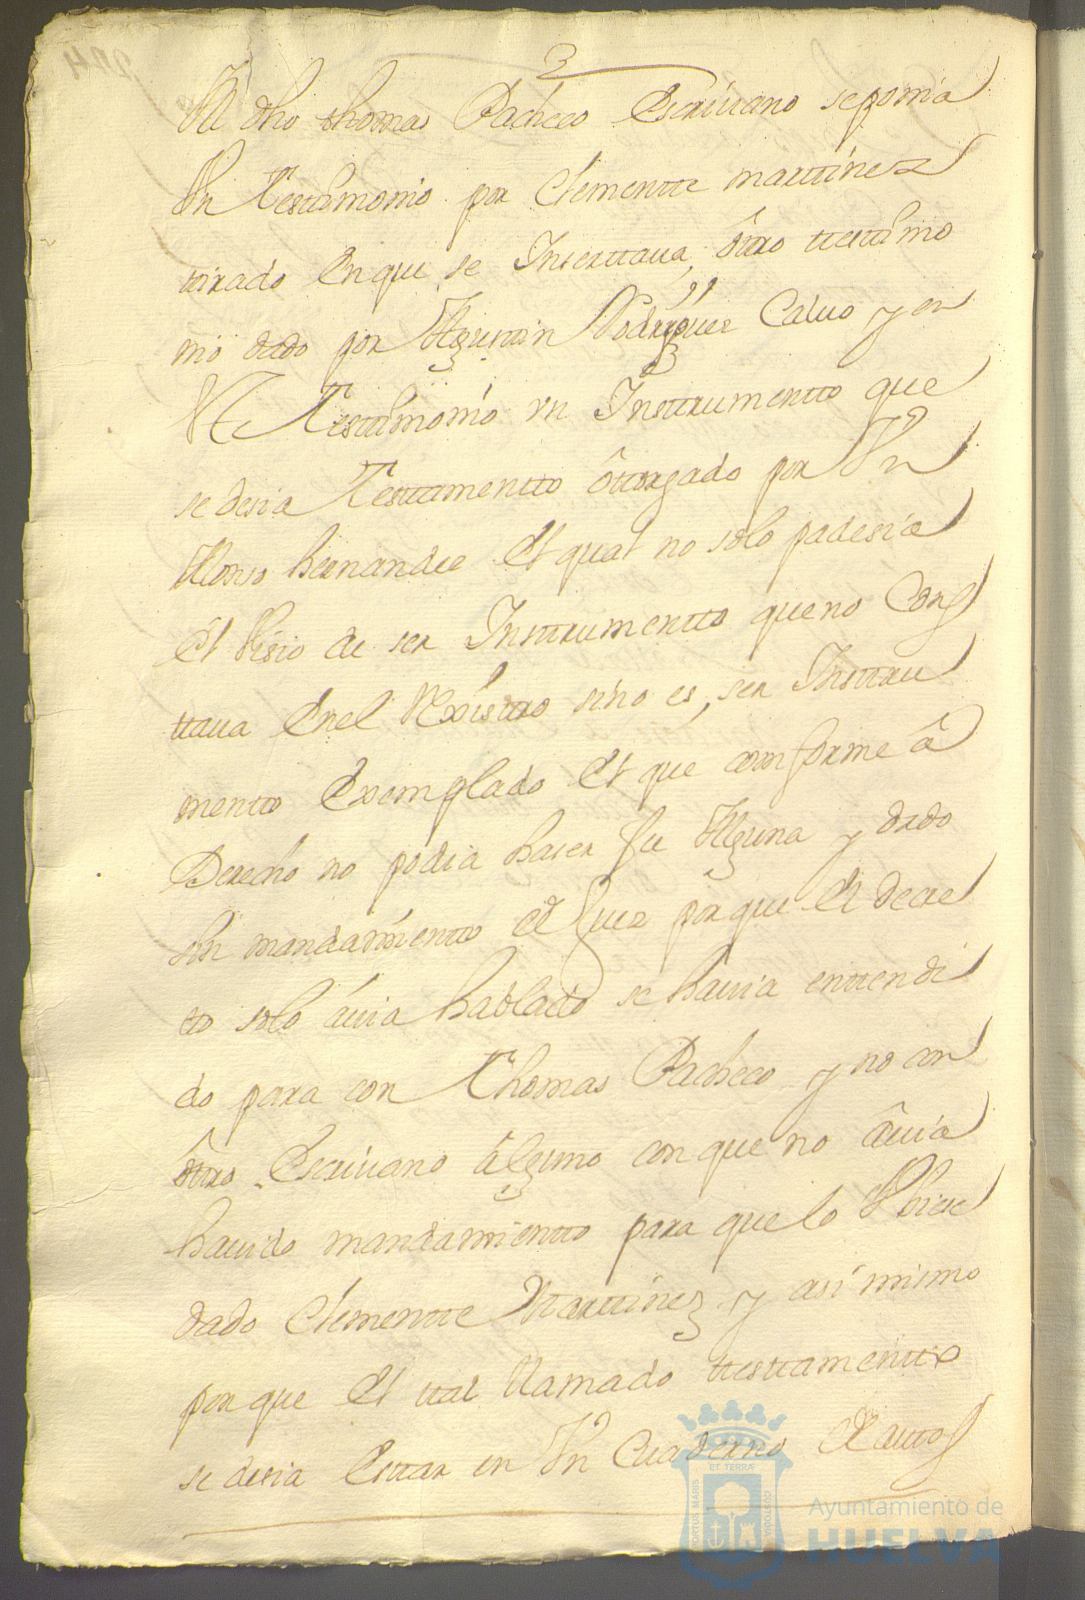 El dho thomas Pacheco Escriuano se ponia
Vn Testimonio por Clementte marttinez
tirado En que se Inserttaua ôttro ttestimo
nio dado por Agustin Rodriguez Caluo y en
El Testimonio vn Insttrumentto que
se desia Testtamentto ôttorgado por Vn
Alonso hernandes El qual no solo padesia
El Visio de ser Insttrumentto que no Cons
ttaua En el Rexisttro sino es ser Insttru
mentto Exemplado El que comforme â
Derecho no podia haser fee Alguna y dado
sin mandamientto del Juez porque El decre
to solo âuia hablado se hauia enttendi
do para con Thomas Pacheco y no con
ôttro Escriuano âlguno con que no âuia
hauido mandamientto para que lo Vbiese
dado Clementte Marttinez y asi mismo
porque El ttal llamado ttesttamentto
se desia Esttar en Vn Cuaderno de auttos
PORTUS MARIS
ET TERRÆ
CUSTODIA
Ayuntamiento de
HUELVA